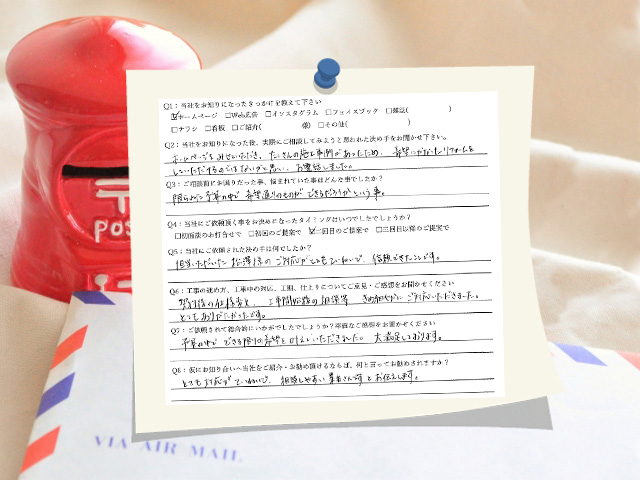 Q1：当社をお知りになったきっかけを教えて下さい
☑ホームページ □Web広告 □インスタグラム □フェイスブック □雑誌( )
□チラシ □看板 □ご紹介( 様) □その他( )
Q2：当社をお知りになった後、実際にご相談してみようと思われた決め手をお聞かせ下さい。
ホームページをみせていただき、たくさんの施工事例があったため、希望にかなったリフォームを
していただけるのではないかと思い、お電話しました。
Q3：ご相談前にお困りだった事、悩まれていた事はどんな事でしたか？
限られた予算の中で 希望通りのものができるだろうかという事。
Q4：当社にご依頼頂く事をお決めになったタイミングはいつでしたでしょうか？
□初回面談のお打合せで □初回のご提案で ☑二回目のご提案で □三回目以降のご提案で
Q5：当社にご依頼された決め手は何でしたか？
担当いただいた 様の ご対応がとてもていねいで、信頼できたことです。
Q6：工事の進め方、工事中の対応、工期、仕上りについてご意見・ご感想をお聞かせください
契約後の仕様変更、工事開始後の 相談等 きめ細やかに ご対応いただきました。
とてもありがたかったです。
Q7：ご依頼されて総合的にいかがでしたでしょうか？率直なご感想をお聞かせください
予算の中で できる限りの希望を叶えていただきました。大満足しております。
Q8：仮にお知り合いへ当社をご紹介・お勧め頂けるならば、何と言ってお勧めされますか？
とても対応がていねいで、相談しやすい業者さんですとお伝えします。
POS
VIA AIR MAIL